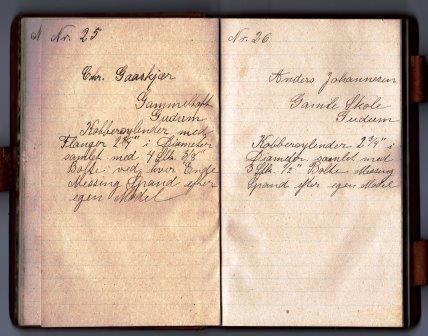 Nr. 25
Chr. Gaaskjær
Gammeltoft
Gudum
Kobbercylender med
Flanger 2¾" i Diameter
samlet med 4 Stk. 3/8"
Bolte ved hver Ende
Messing Spand efter
egen Model
Nr. 26
Anders Johannesen
Gamle Skole
Gudum
Kobbercylender 2¾" i
Diameter samlet med
3 Stk. ½" Bolte Messing
Spand efter egen Model